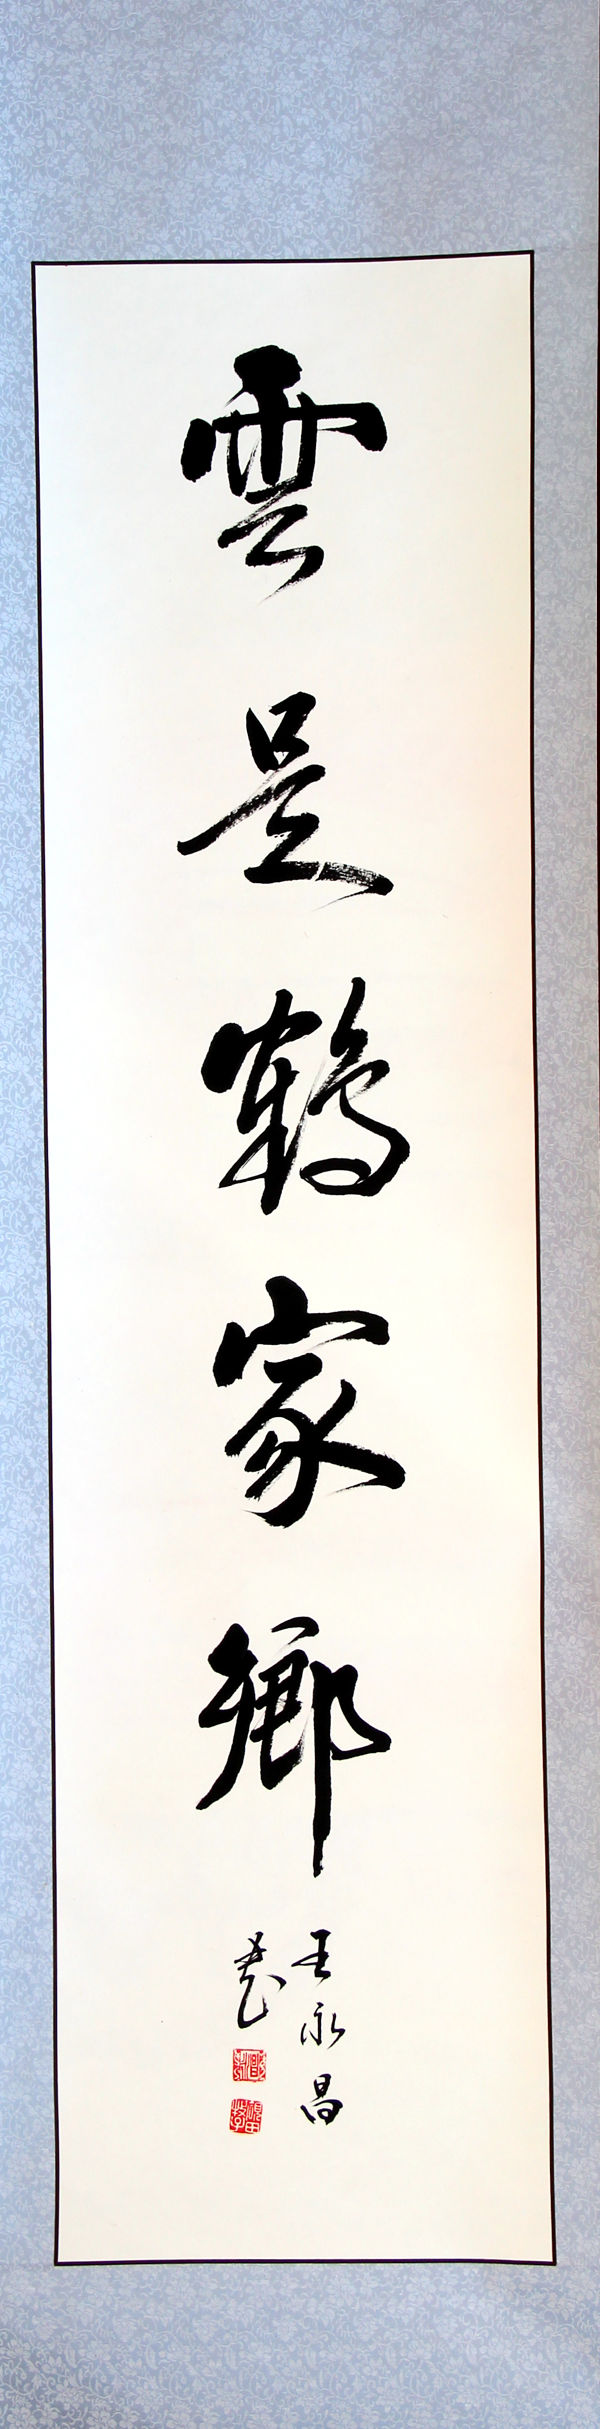 雲是鶴家鄉
王永昌